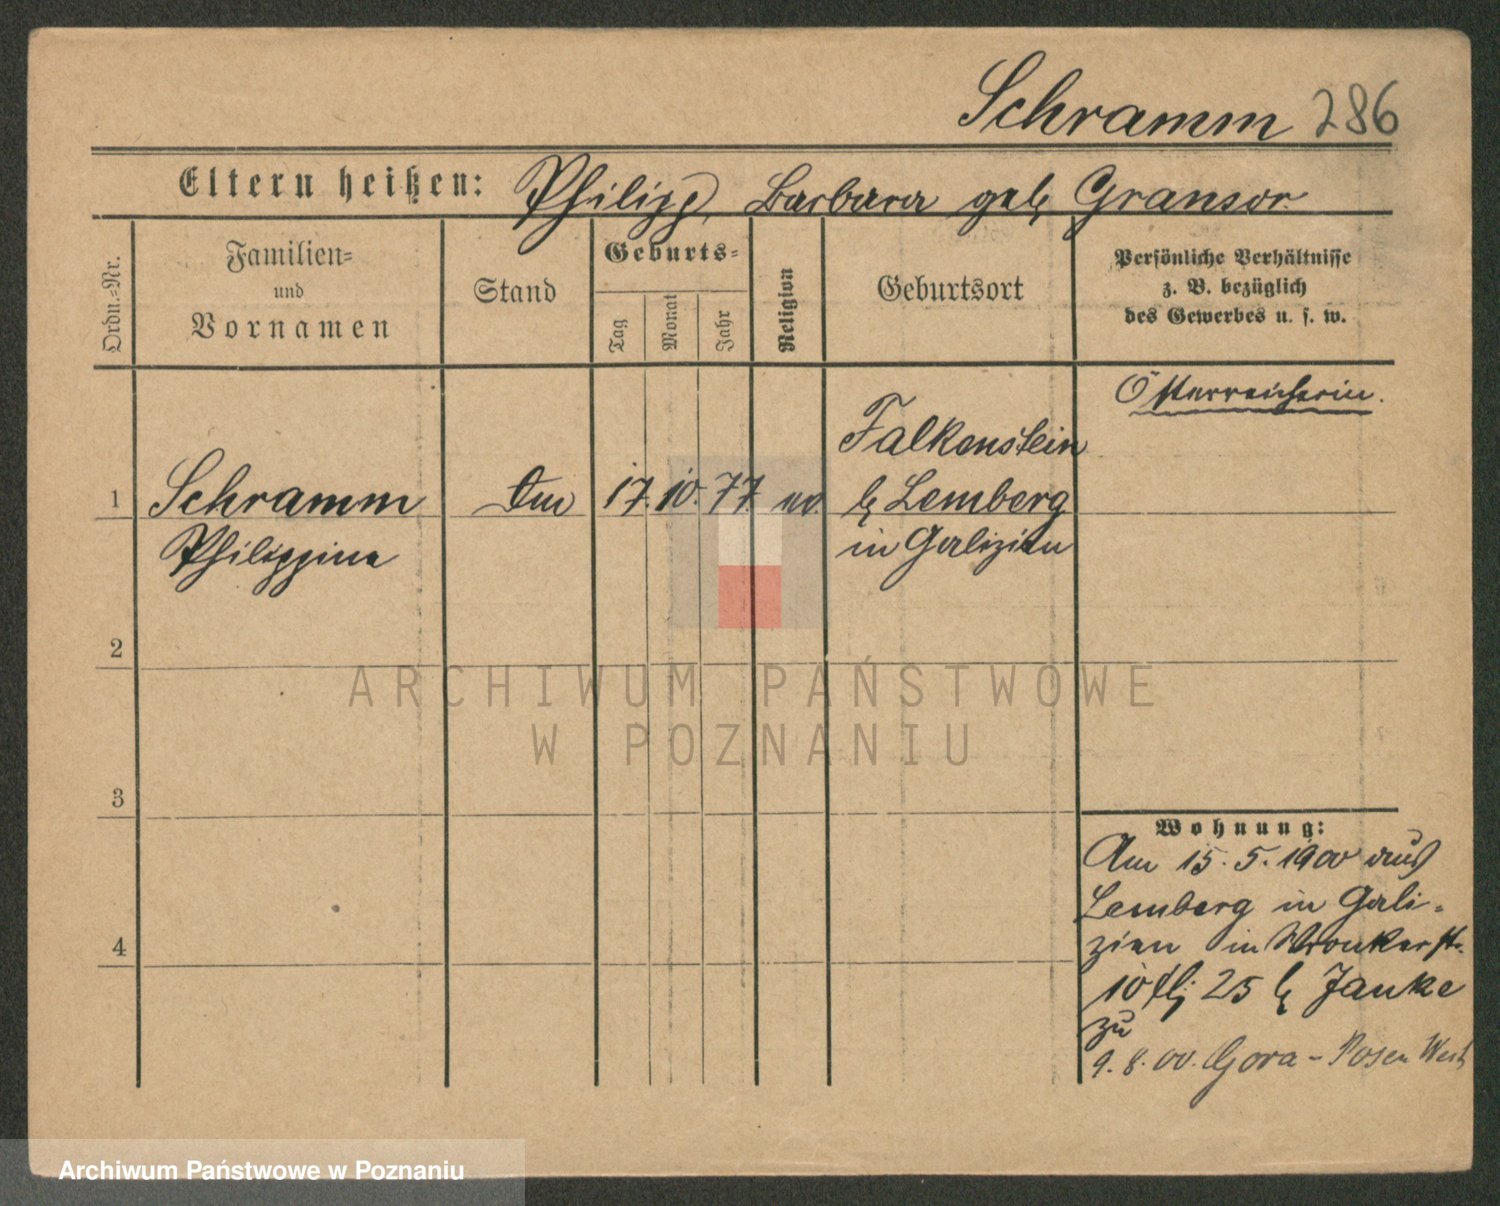 Schramm 286
Eltern heißen: Philipp, Barbara geb. Gransor
Ordn.=Nr.
Familien=
und
Vornamen
Stand
Geburts=
Tag
Monat
Jahr
Religion
Geburtsort
Persönliche Verhältnisse
z. B. bezüglich
des Gewerbes u. s. w.
Österreicherin.
1
Schramm
Philippine
17. 10. 77.
ev.
Falkenstein
b. Lemberg
in Galizien
2
3
4
Wohnung:
Am 15. 5. 1900 aus
Lemberg in Gali-
zien in Wronkerstr.
10 25 b. Janke
zu
9. 8. 00. Gora - Posen West
ARCHIWUM PAŃSTWOWE
W POZNANIU
Archiwum Państwowe w Poznaniu